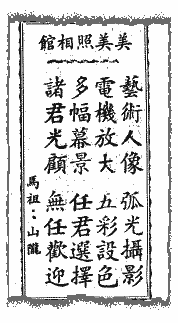 美美照相館
藝術人像 弧光攝影
電機放大 五彩設色
多幅幕景 任君選擇
諸君光顧 無任歡迎
馬祖：山隴